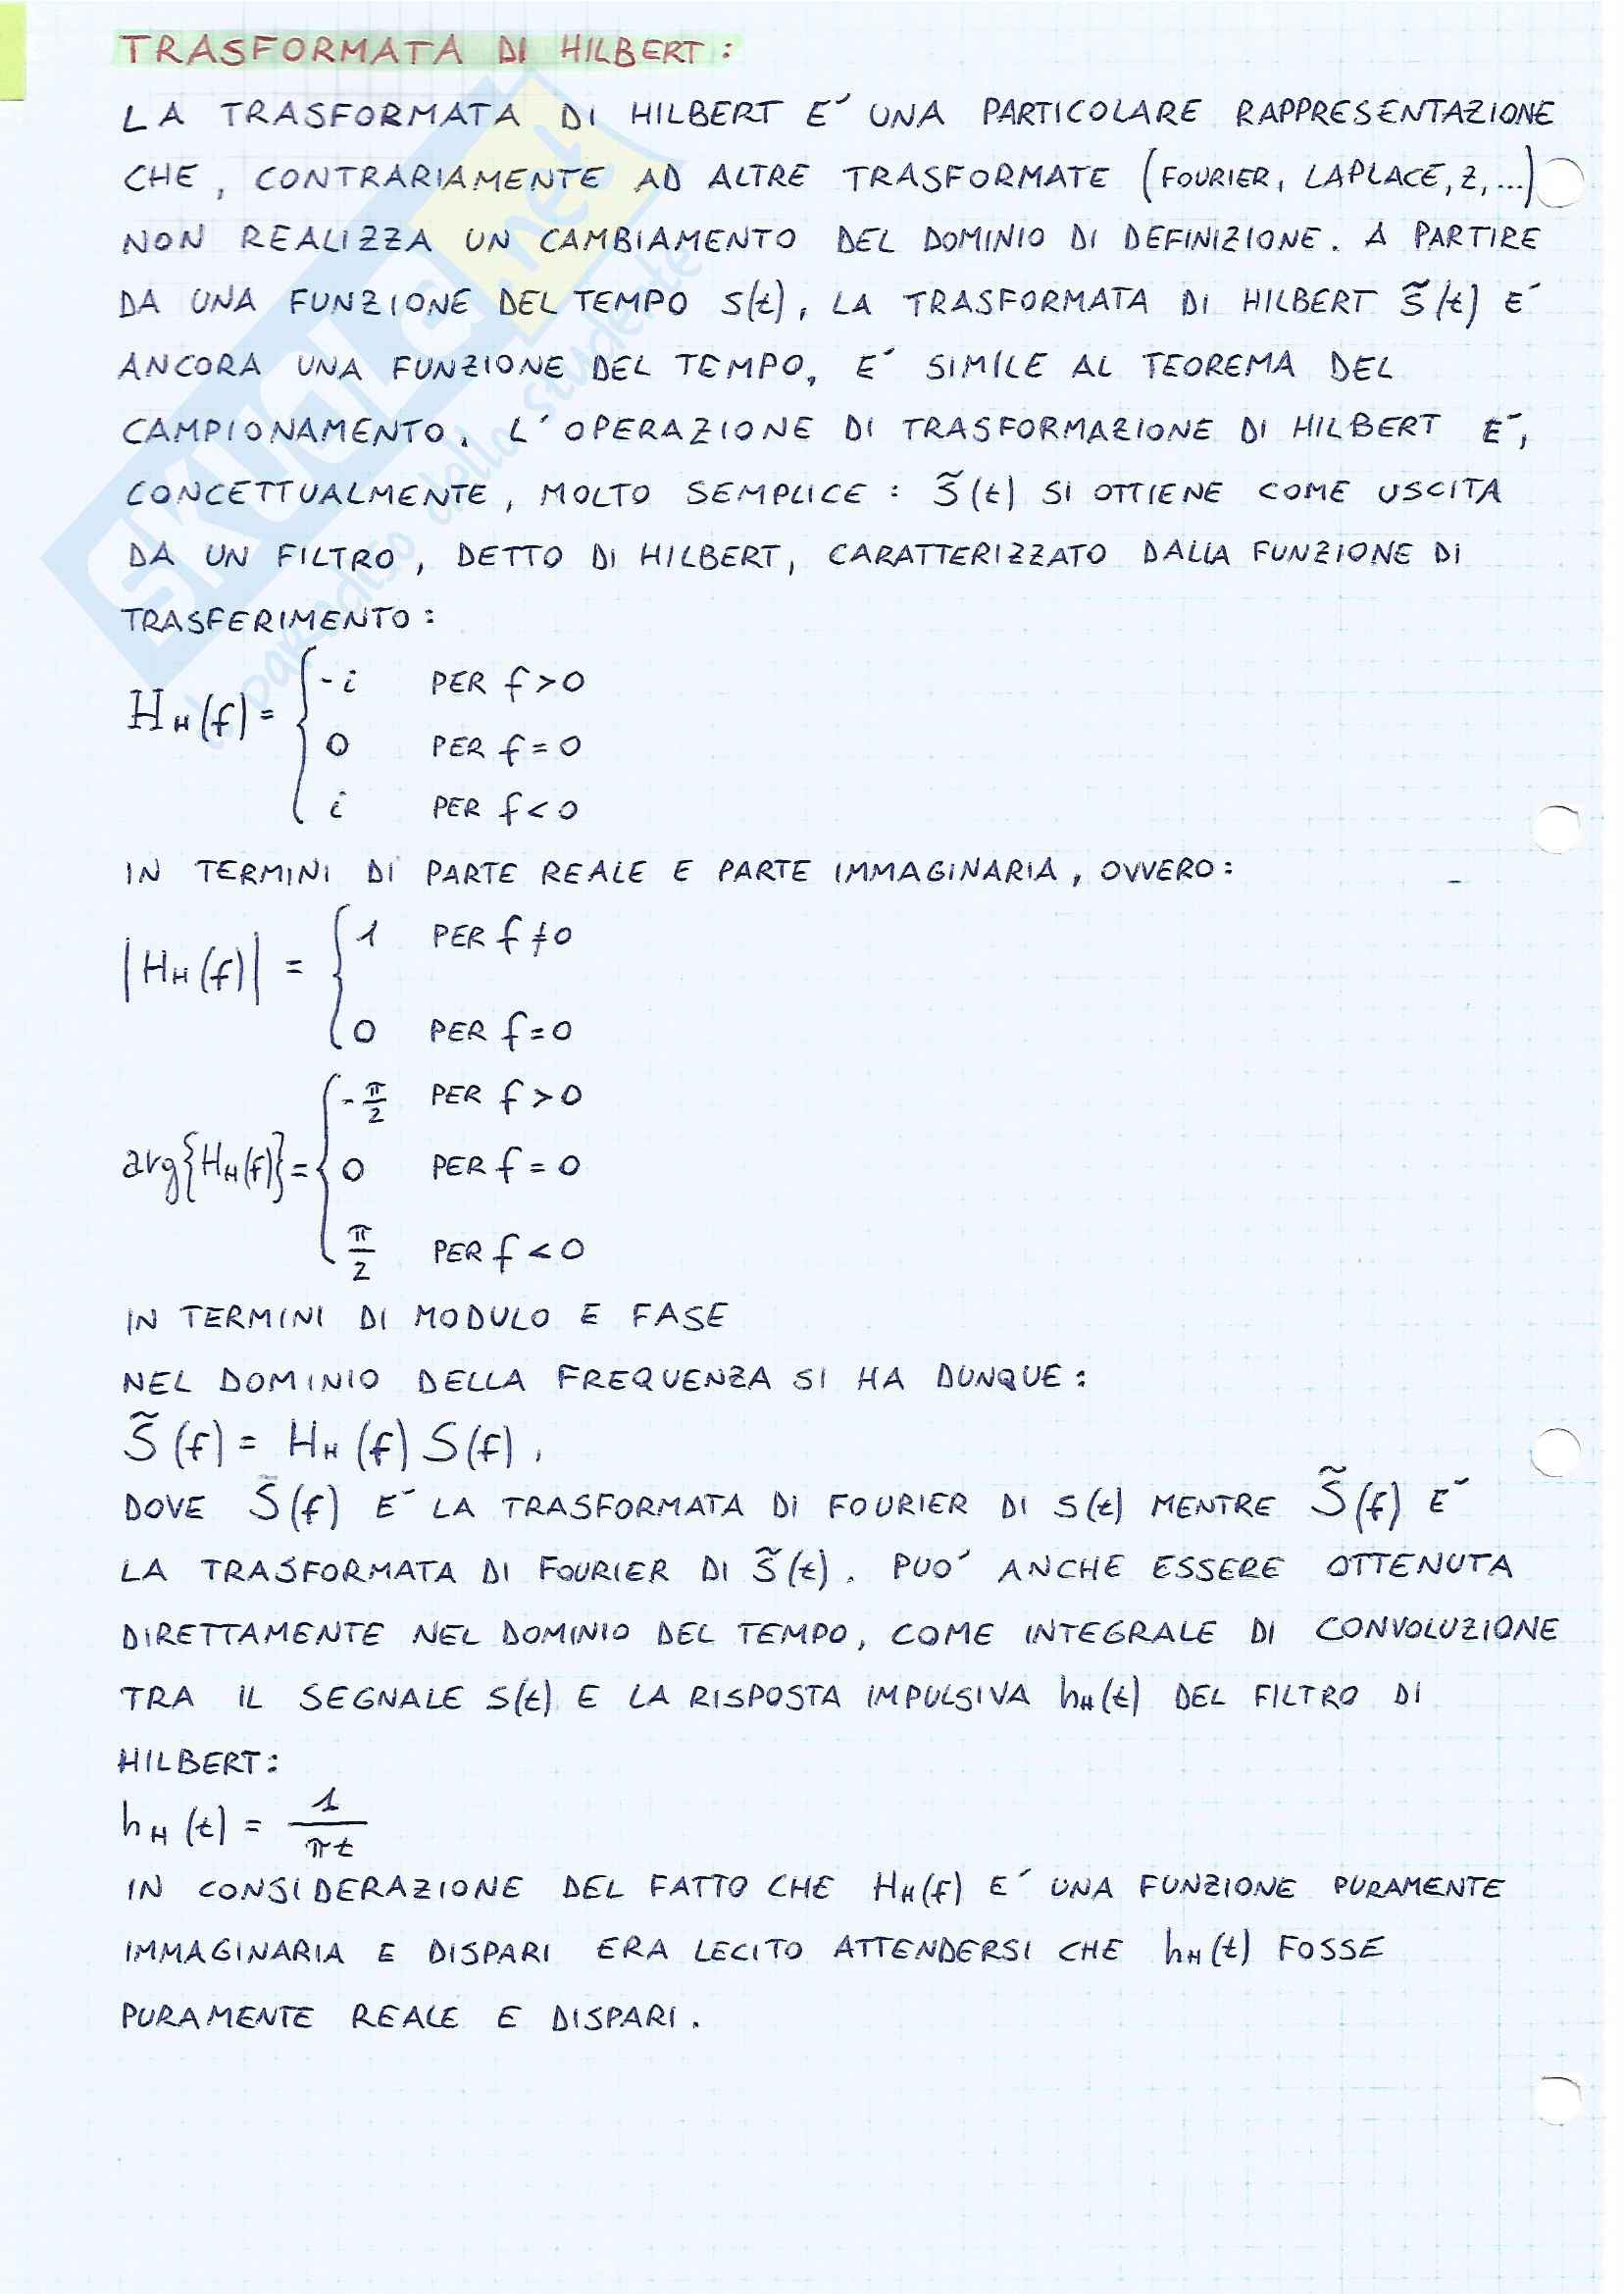 TRASFORMATA DI HILBERT:
LA TRASFORMATA DI HILBERT E´ UNA PARTICOLARE RAPPRESENTAZIONE
CHE, CONTRARIAMENTE AD ALTRE TRASFORMATE (FOURIER, LAPLACE, Z, ...)
NON REALIZZA UN CAMBIAMENTO DEL DOMINIO DI DEFINIZIONE. A PARTIRE
DA UNA FUNZIONE DEL TEMPO s(t), LA TRASFORMATA DI HILBERT s̃(t) E´
ANCORA UNA FUNZIONE DEL TEMPO, E´ SIMILE AL TEOREMA DEL
CAMPIONAMENTO. L´OPERAZIONE DI TRASFORMAZIONE DI HILBERT E´,
CONCETTUALMENTE, MOLTO SEMPLICE: s̃(t) SI OTTIENE COME USCITA
DA UN FILTRO, DETTO DI HILBERT, CARATTERIZZATO DALLA FUNZIONE DI
TRASFERIMENTO:
H_H(f) = { -i PER f > 0
0 PER f = 0
i PER f < 0
IN TERMINI DI PARTE REALE E PARTE IMMAGINARIA, OVVERO:
|H_H(f)| = { 1 PER f ≠ 0
0 PER f = 0
arg{H_H(f)} = { -π/2 PER f > 0
0 PER f = 0
π/2 PER f < 0
IN TERMINI DI MODULO E FASE
NEL DOMINIO DELLA FREQUENZA SI HA DUNQUE:
S̃(f) = H_H(f) S(f),
DOVE S̃(f) E´ LA TRASFORMATA DI FOURIER DI s(t) MENTRE S̃(f) E´
LA TRASFORMATA DI FOURIER DI s̃(t). PUO´ ANCHE ESSERE OTTENUTA
DIRETTAMENTE NEL DOMINIO DEL TEMPO, COME INTEGRALE DI CONVOLUZIONE
TRA IL SEGNALE s(t) E LA RISPOSTA IMPULSIVA h_H(t) DEL FILTRO DI
HILBERT:
h_H(t) = 1/πt
IN CONSIDERAZIONE DEL FATTO CHE H_H(f) E´ UNA FUNZIONE PURAMENTE
IMMAGINARIA E DISPARI ERA LECITO ATTENDERSI CHE h_H(t) FOSSE
PURAMENTE REALE E DISPARI.
SKUOLA.net
il paradiso dello studente